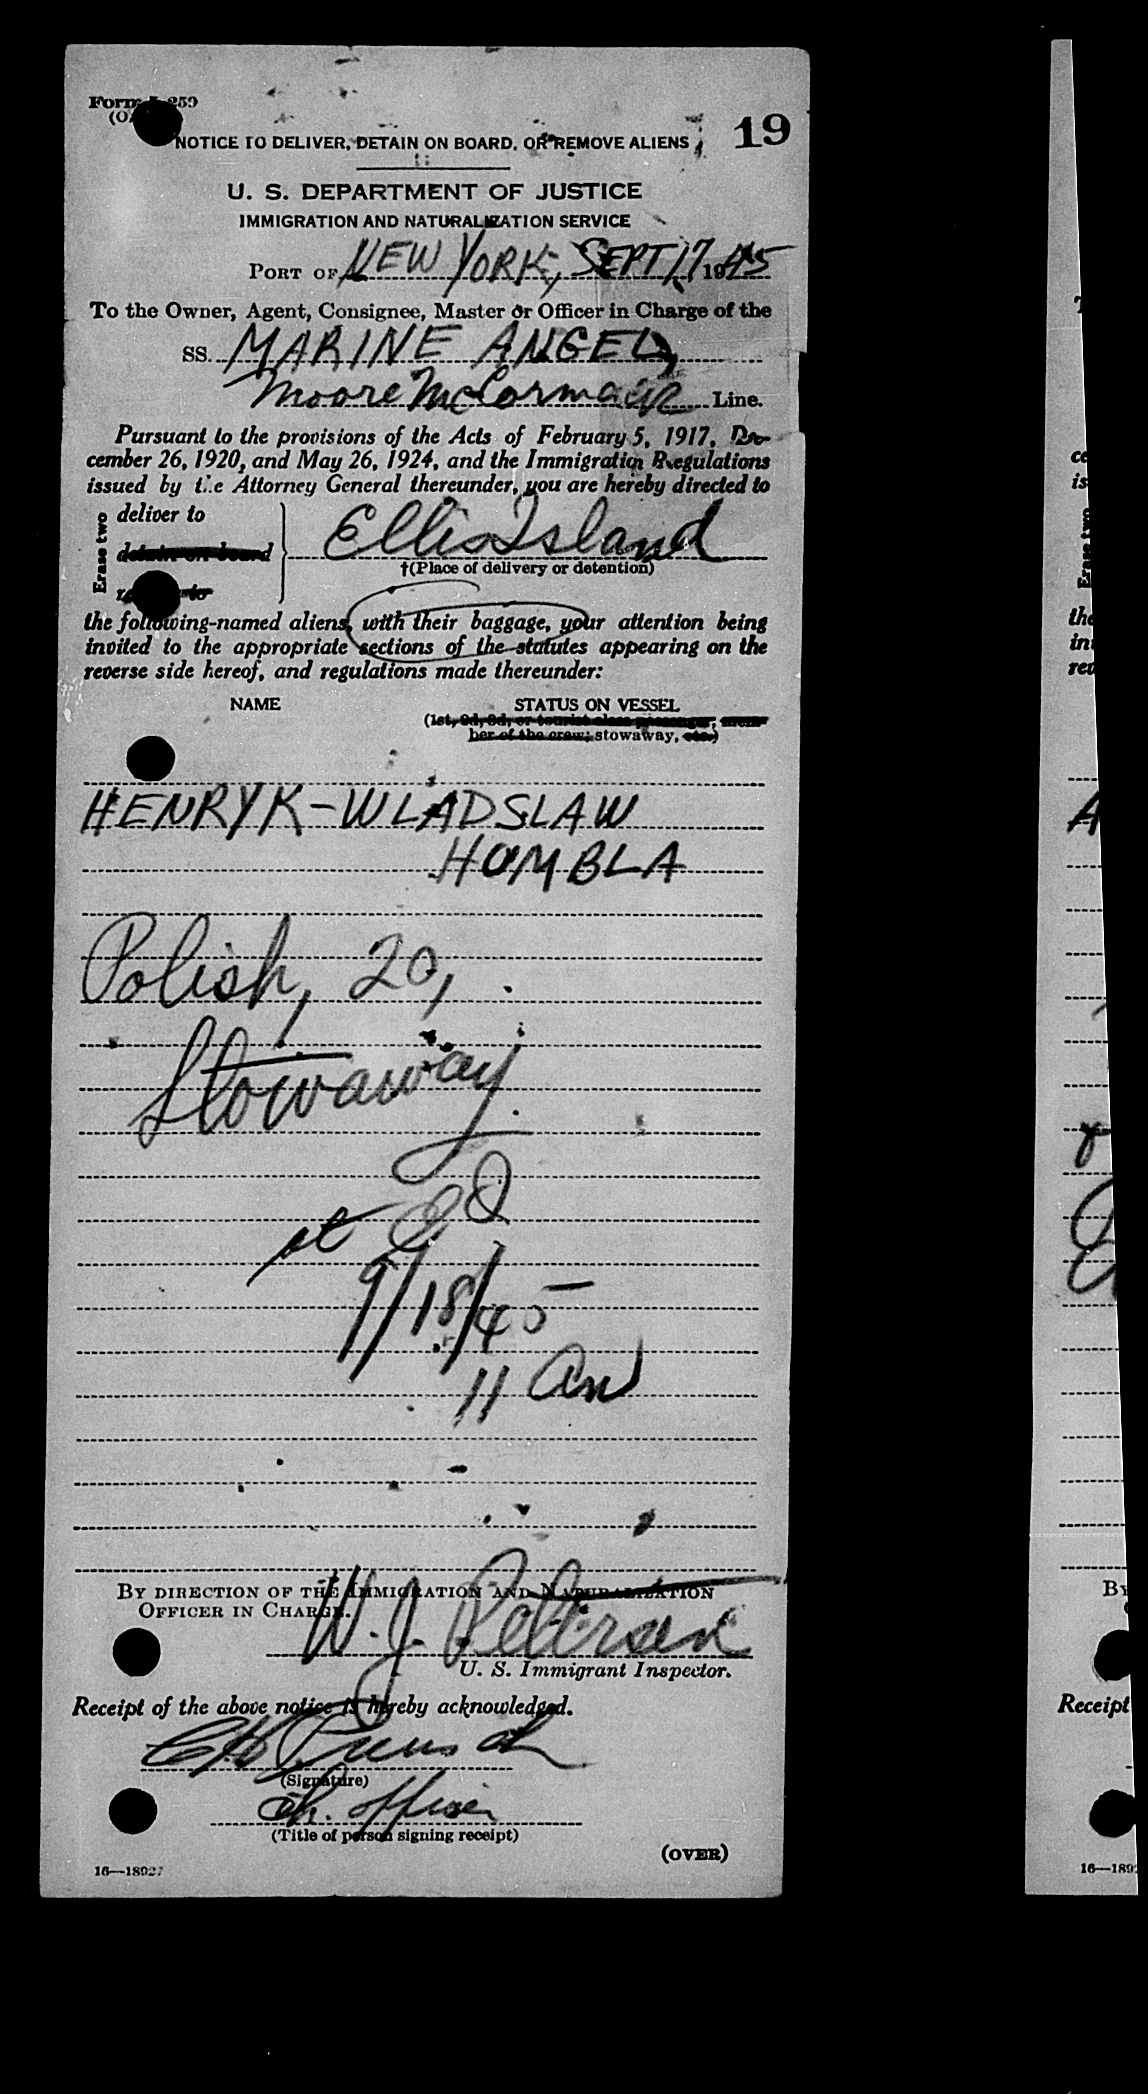 Form 259
19
NOTICE TO DELIVER, DETAIN ON BOARD, OR REMOVE ALIENS
U. S. DEPARTMENT OF JUSTICE
IMMIGRATION AND NATURALIZATION SERVICE
PORT OF NEW YORK, SEPT 17, 1945
To the Owner, Agent, Consignee, Master or Officer in Charge of the
SS. MARINE ANGEL,
Moore McCormack Line.
Pursuant to the provisions of the Acts of February 5, 1917, De-
cember 26, 1920, and May 26, 1924, and the Immigration Regulations
issued by the Attorney General thereunder, you are hereby directed to
Erase two
deliver to
detain on board
Ellis Island
†(Place of delivery or detention)
the following-named aliens, with their baggage, your attention being
invited to the appropriate sections of the statutes appearing on the
reverse side hereof, and regulations made thereunder:
NAME STATUS ON VESSEL
(1st, 2d, 3d, or tourist class passenger, mem-
ber of the crew, stowaway, etc.)
HENRYK-WLADSLAW
HOMBLA
Polish, 20,
Stowaway
at EI
9/18/45
11 AM
BY DIRECTION OF THE IMMIGRATION AND NATURALIZATION
OFFICER IN CHARGE.
W. J. Petersen
U. S. Immigrant Inspector.
Receipt of the above notice is hereby acknowledged.
(Signature)
Ch. officer
(Title of person signing receipt)
(OVER)
16—18927
ce
is
Erase two
the
inv
rev
A
By
Receipt
16—189